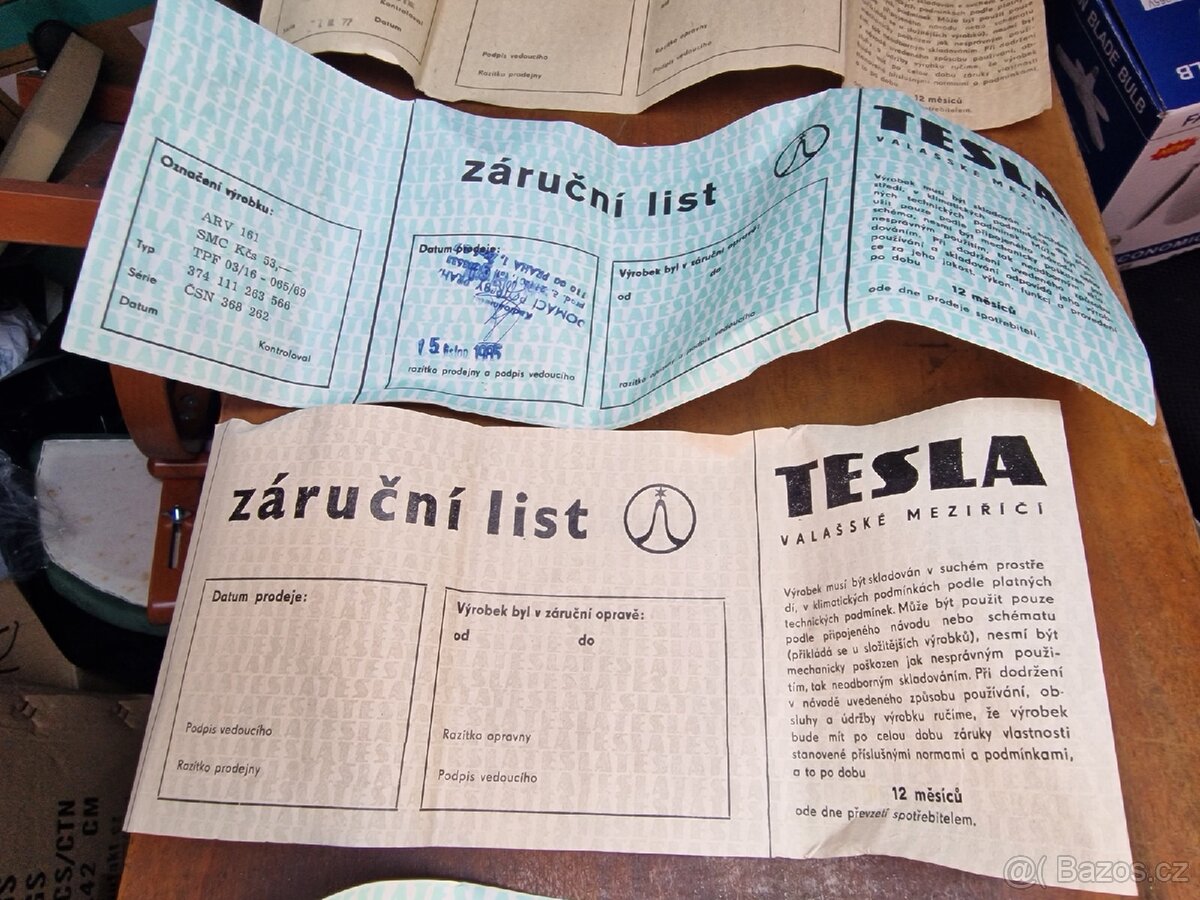 Kontroloval
Datum
77
Podpis vedoucího
Razítko prodejny
od
Razítko opravny
Podpis vedoucího
po celou dobu záruky vlastnosti
příslušnými normami a podmínkami,
po dobu
12 měsíců
spotřebitelem.
BLADE BULB
Označení výrobku:
ARV 161
SMC Kčs 53,—
Typ TPF 03/16 - 065/69
Série 374 111 263 566
Datum ČSN 368 262
Kontroloval
záruční list
Datum prodeje:
DOMÁCÍ POTŘEBY PRAHA
15. října 1985
razítko prodejny a podpis vedoucího
Výrobek byl v záruční opravě:
od do
razítko opravny a podpis vedoucího
TESLA
VALAŠSKÉ MEZIŘÍČÍ
Výrobek musí být skladován
středí, v klimatických podmínkách
ných technických podmínek.
užit pouze podle připojeného
schéma, nesmí být mechanicky
nesprávným použitím
dováním. Při
používání a skladování odpovídá
ce za jeho jakost, výkon, funkci a provedení
po dobu
12 měsíců
ode dne prodeje spotřebiteli.
záruční list
Datum prodeje:
Podpis vedoucího
Razítko prodejny
Výrobek byl v záruční opravě:
od do
Razítko opravny
Podpis vedoucího
TESLA
VALAŠSKÉ MEZIŘÍČÍ
Výrobek musí být skladován v suchém prostře
dí, v klimatických podmínkách podle platných
technických podmínek. Může být použit pouze
podle připojeného návodu nebo schématu
(přikládá se u složitějších výrobků), nesmí být
mechanicky poškozen jak nesprávným použi-
tím, tak neodborným skladováním. Při dodržení
v návodě uvedeného způsobu používání, ob-
sluhy a údržby výrobku ručíme, že výrobek
bude mít po celou dobu záruky vlastnosti
stanovené příslušnými normami a podmínkami,
a to po dobu
12 měsíců
ode dne převzetí spotřebitelem.
CS/CTN
42 CM
Bazos.cz